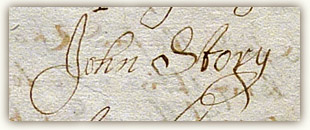 John Story